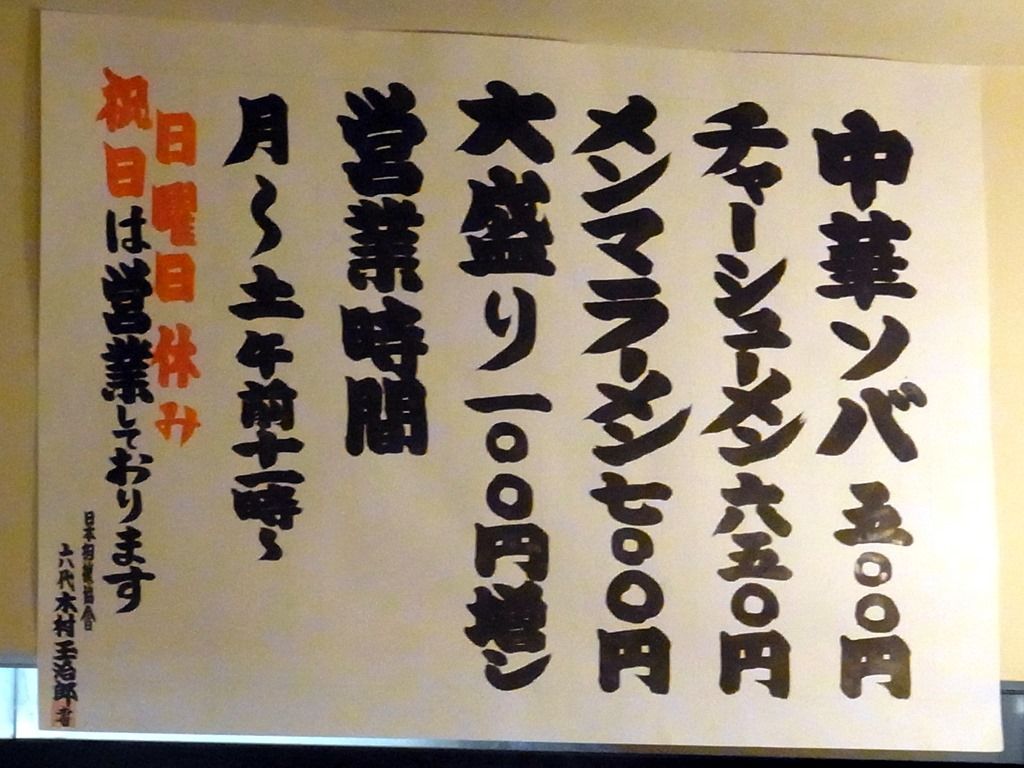 中華ソバ 五〇〇円
チャーシューメン六五〇円
メンマラーメン七〇〇円
大盛り一〇〇円増シ
営業時間
月～土午前十一時～
日曜日休み
祝日は営業しております
日本相撲協会
六代木村玉治郎書